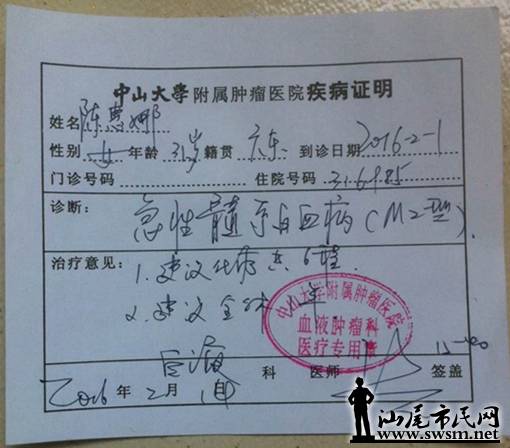 中山大学附属肿瘤医院疾病证明
姓名 陈惠娜
性别 女 年龄 31岁 籍贯 广东 到诊日期 2016-2-1
门诊号码 住院号码 316985
诊断： 急性髓系白血病(M2型).
治疗意见： 1. 建议化疗共6程.
2. 建议全休
中山大学附属肿瘤医院
血液肿瘤科
医疗专用章
2016 年 2 月 1 日 科 医师 签盖
汕尾市民网
www.swsm.net